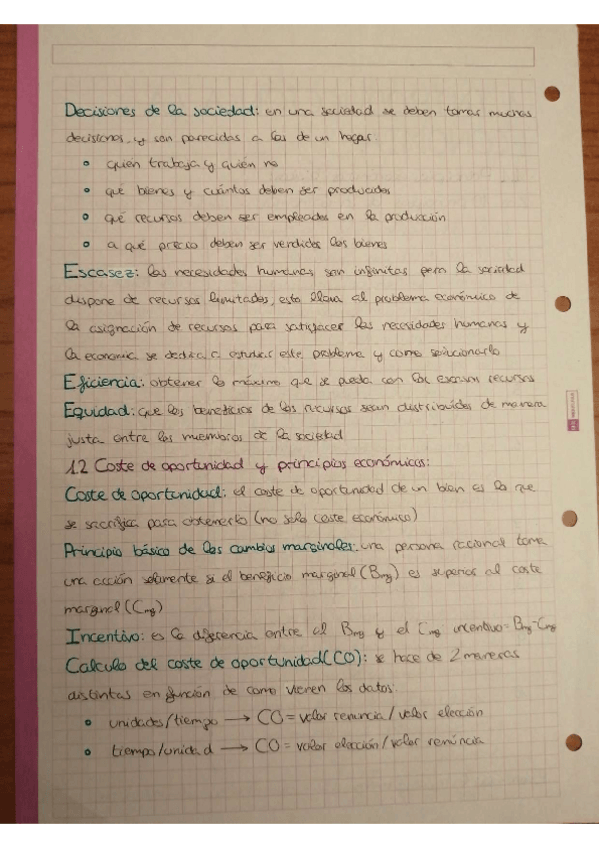 Decisiones de la sociedad: en una sociedad se deben tomar muchas
decisiones, y son parecidas a las de un hogar.
• quien trabaja y quién no
• qué bienes y cuántos deben ser producidos
• qué recursos deben ser empleados en la producción
• a qué precio deben ser vendidos los bienes
Escasez: las necesidades humanas son infinitas pero la sociedad
dispone de recursos limitados, esto lleva al problema económico de
la asignación de recursos para satisfacer las necesidades humanas y
la economía se dedica a estudiar este problema y como solucionarlo
Eficiencia: obtener lo máximo que se pueda con los escasos recursos
Equidad: que los beneficios de los recursos sean distribuidos de manera
justa entre los miembros de la sociedad
1.2 Coste de oportunidad y principios económicos:
Coste de oportunidad: el coste de oportunidad de un bien es lo que
se sacrifica para obtenerlo (no solo coste económico)
Principio básico de los cambios marginales: una persona racional toma
una acción solamente si el beneficio marginal (Bmg) es superior al coste
marginal (Cmg)
Incentivo: es la diferencia entre el Bmg y el Cmg incentivo = Bmg - Cmg
Calculo del coste de oportunidad (CO): se hace de 2 maneras
distintas en función de como vienen los datos:
• unidades/tiempo → CO = valor renuncia / valor elección
• tiempo/unidad → CO = valor elección / valor renúncia